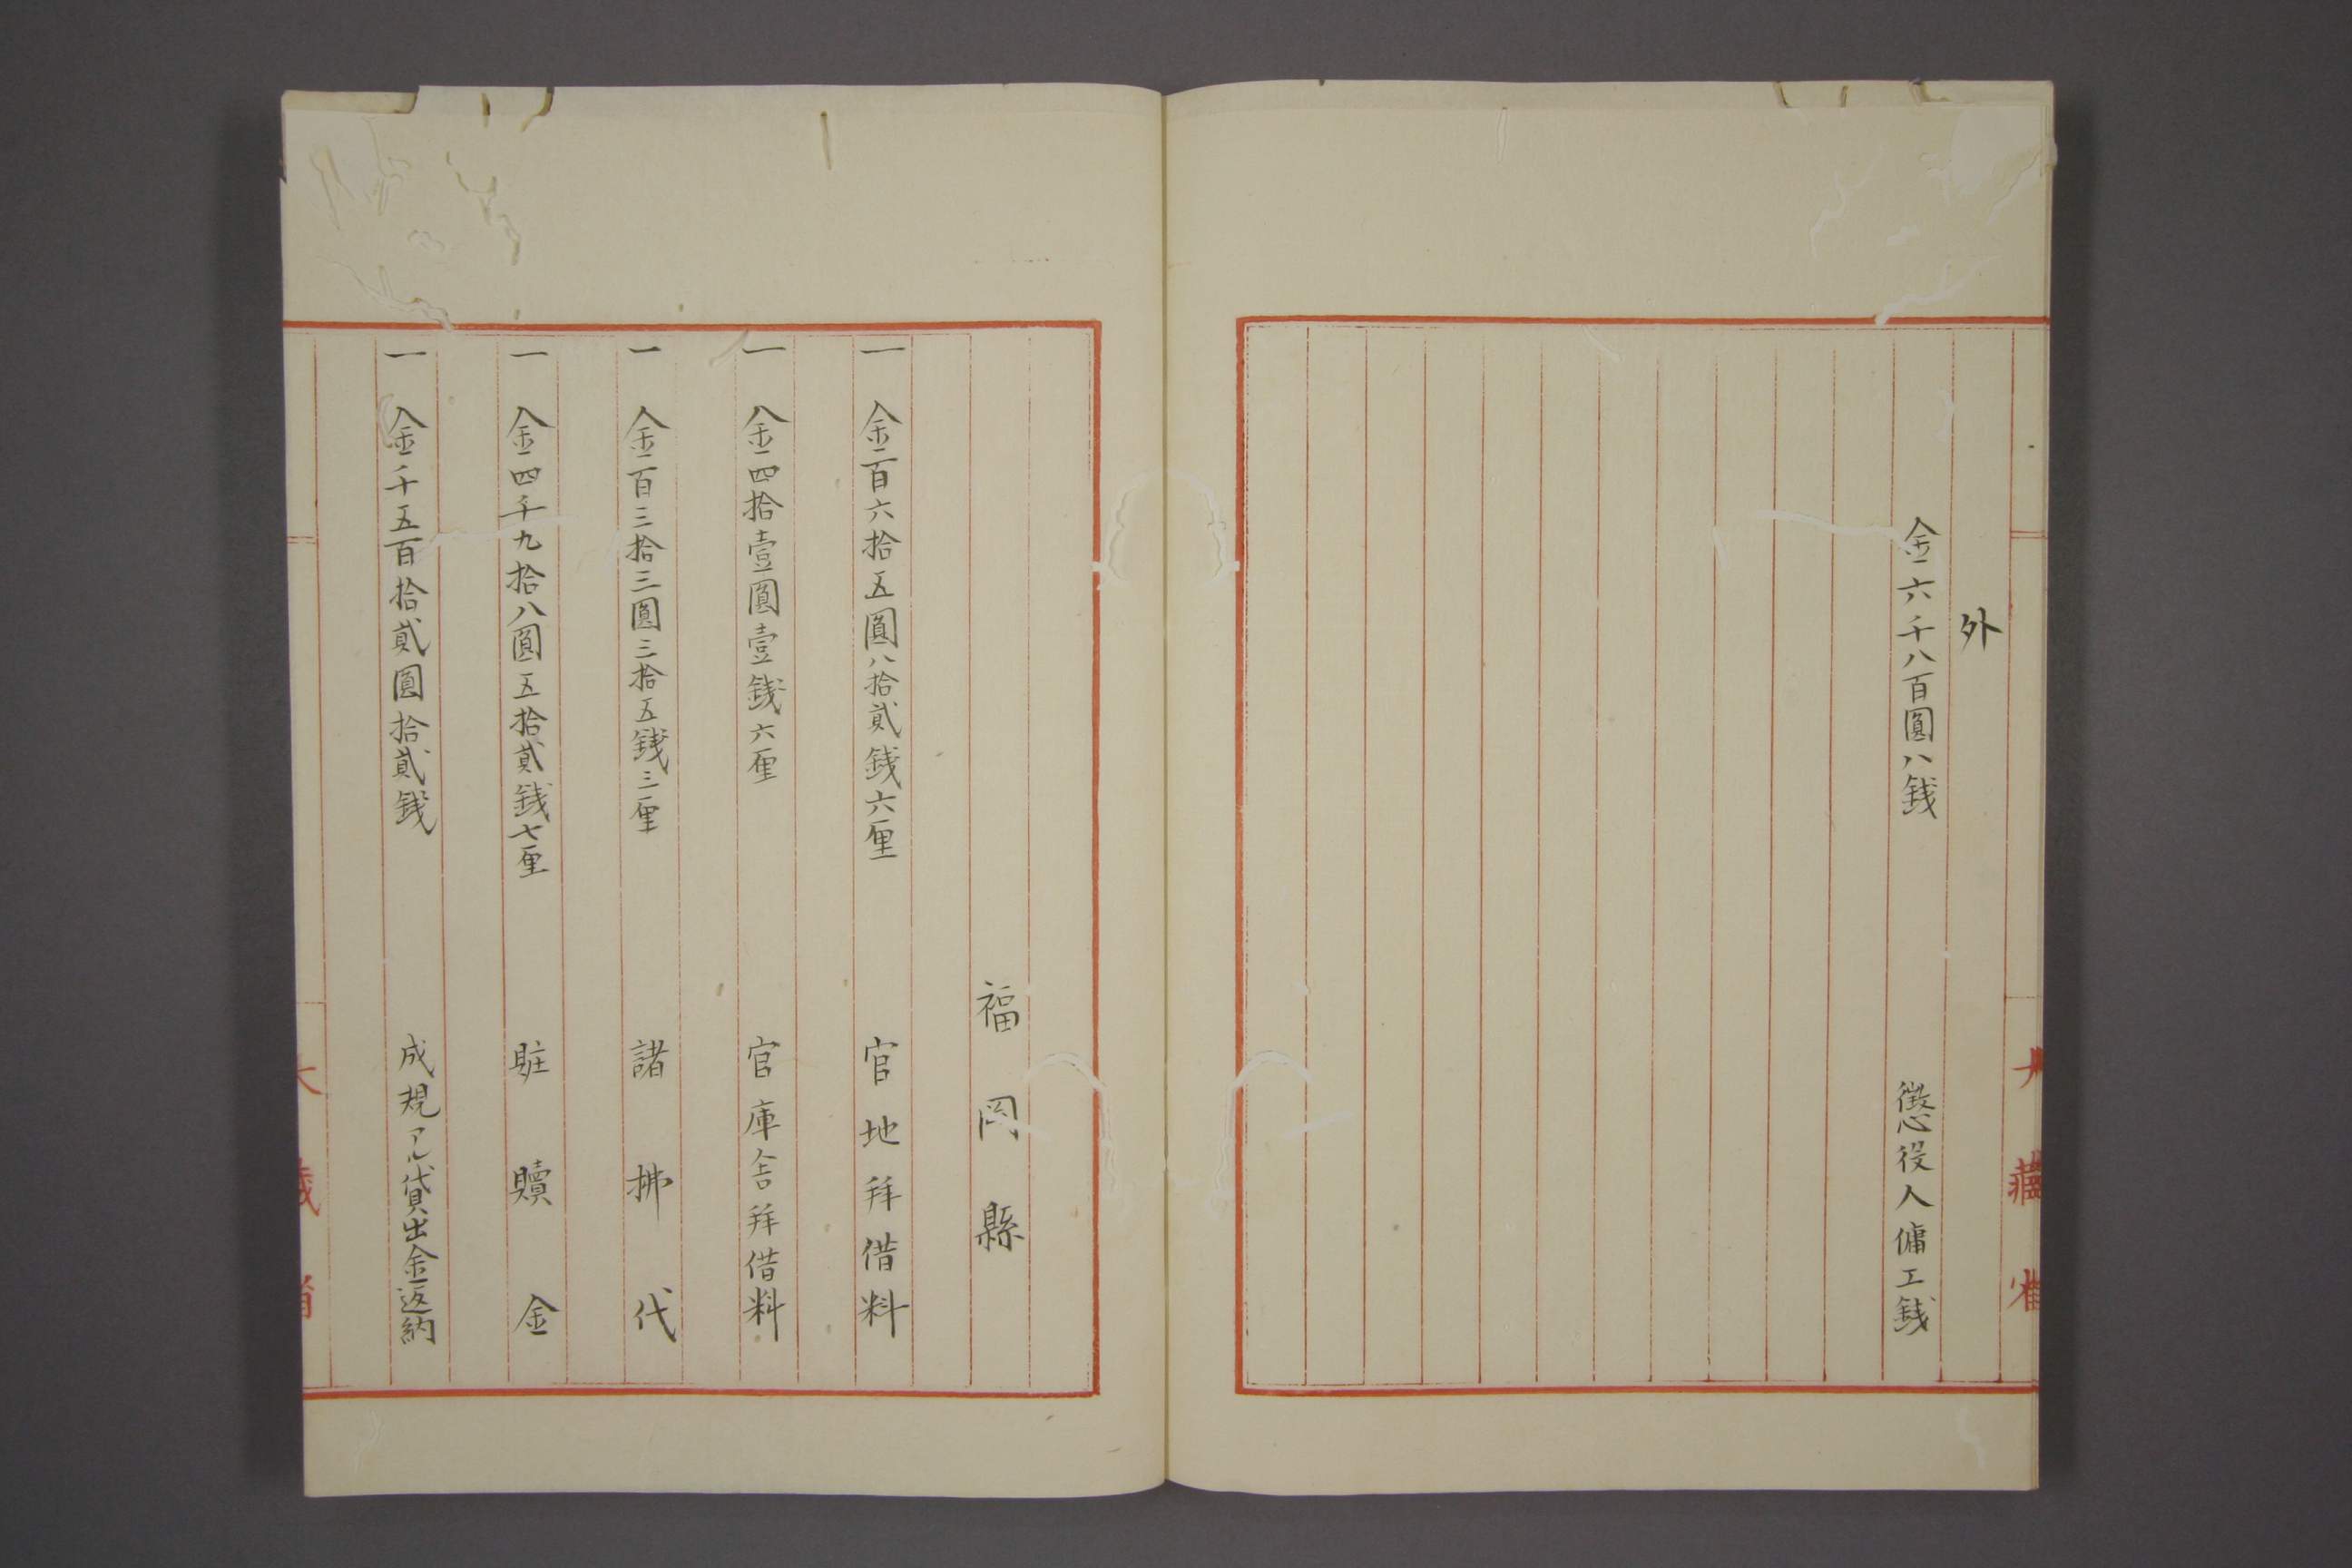 外
金六千八百圓八銭 懲役人傭工銭
大藏省
福岡縣
一 金百六拾五圓八拾貳銭六厘 官地拜借料
一 金四拾壹圓壹銭六厘 官庫舎拜借料
一 金百三拾三圓三拾五銭三厘 諸拂代
一 金四千九拾八圓五拾貳銭七厘 賍贖金
一 金千五百拾貳圓拾貳銭 成規アル貸出金返納